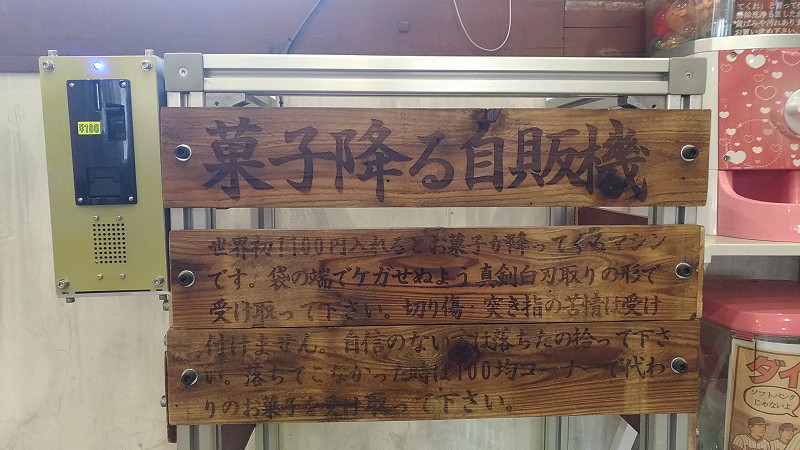 ¥100
菓子降る自販機
世界初!100円入れるとお菓子が降ってくるマシン
です。袋の端でケガせぬよう真剣白刃取りの形で
受け取って下さい。切り傷・突き指の苦情は受け
付けません。自信のない は落ちたの拾って下さ
い。落ちてこなかった時は100均コーナーで代わ
りのお菓子を受け取って下さい。
てくれ」と言って
お買い求め下さい
ダイ
ソフトバンク
じゃないよ